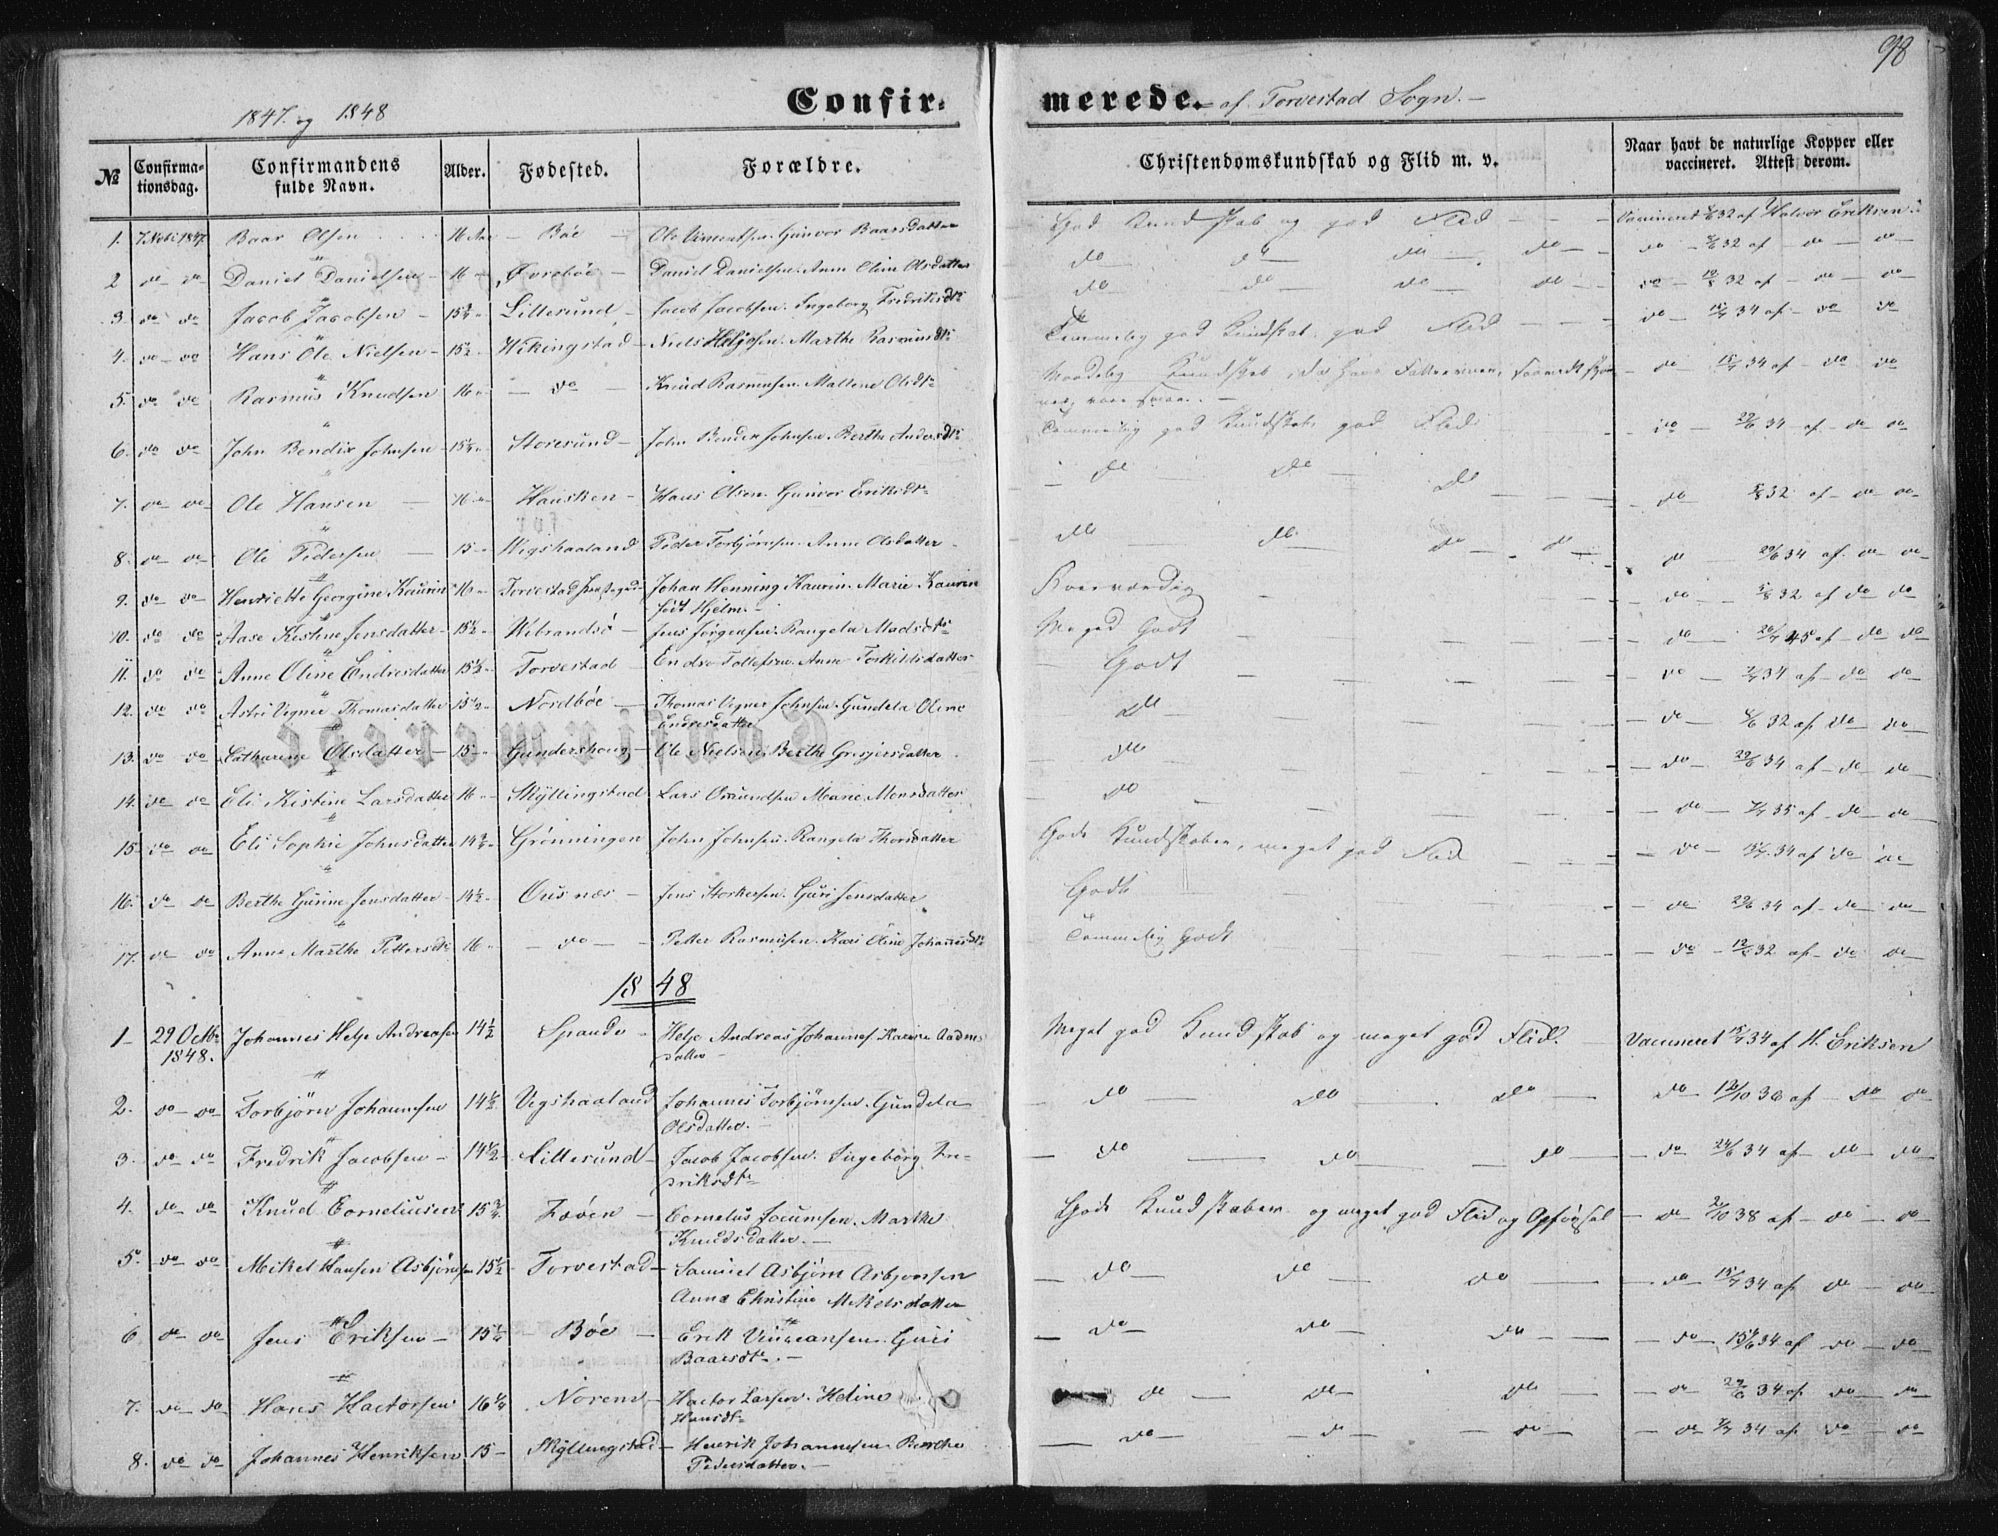 98
1847. og 1848
Confir=
merede. - af Torvestad Sogn. -
№ Confirma-tionsdag. Confirmandens fulde Navn. Alder. Fødested. Forældre. Christendomskundskab og Flid m. v. Naar havt de naturlige Kopper eller vaccineret. Attest derom.
1. 7 Nobr 1847 Baar Olsen 16 Aar - Bøe - Ole Vincentsen. Gunvor Baarsdatter God Kundskab og god Flid - - - Vaccineret 32 af Halvor Eriksen
2 do do Daniel Danielsen - 16 - Øvrebøe - Daniel Danielsen. Anne Oline Olsdatter do do do do do - 32 af - do - do
3. do do Jacob Jacobsen - 15¾ - Lillesund - Jacob Jacobsen. Ingeborg Fredriksdtr do do do do do - 32 af - do - do
4. do do Hans Ole Nielsen - 15½ - Wikingstad - Niels Helgesen. Marthe Rasmusdtr Temmelig god Kundskab. god Flid - - do - 34 af - do do
5. do do Rasmus Knudsen 16 - do - Knud Rasmussen. Malene Olsdtr Maadelig Kundskab, - do - 15/7 34 af - do do
6. do do John Bendix Johnsen - 15¼ - Storesund - John Bendix Johnsen. Berthe Andersdtr Temmelig god Kundskab god Flid - do - 34 af - do - do
7. do do Ole Hansen - 16 - Hausken - Hans Olsen. Gunvor Eriksdtr - do do do - do 32 af - do - do
8. do do Ole Pedersen - 15 - Wigshaaland Peder Torbjørnsen. Anne Olsdatter do do do - do do 34 af. do - do
9. do do Henriette Georgine Kaurin 16 - Torvestad Præstegaard Johan Henning Kaurin. Marie Kaurin
født Hjelm. - Særværdig - do - 32 af do do
10. do do Aase Kistine Jensdatter - 15½ - Wibrandsø - Jens Jørgensen. Rangela Madsdtr Meget Godt - do - 45 af - do do
11. do do Anne Oline Endresdatter 15½ - Torvestad - Endre Tollefsen. Anne Torkildsdatter Godt - do - 34 af - do - do
12. do do Astri Vigner Thomasdatter 15½ - Nordbøe - Thomas Vigner Johnsen. Gundela Oline
Endresdatter do - do - 32 af do - do
13. do do Cathrine Olsdatter - 15 - Gundershoug - Ole Nielsen. Berthe Gresjersdatter do - do - 34 af - do do
14. do do Eli Kistine Larsdatter 16 - Skyllingstad Lars Omundsen Marie Monsdatter do - do - 35 af - do do
15 do do Eli Sophie Johnsdatter 14¾ - Grønningen John Johnsen. Rangela Thorsdatter Gode Kundskaber, meget god Flid - do - 34 af do do
16. do do Berthe Gurine Jensdatter - 14½ - Ousnæs - Jens Storkersen. Guri Jensdatter Godt - do 34 af - do do
17. do do Anne Marthe Pettersdtr 16 - do - Petter Rasmusen. Kari Oline Johannesdtr Temmelig Godt - do - 32 af - do do
1848
1 29 Octbr
1848. Johannes Helje Andreasen 14½ Spande - Helje Andreas Johannes. Karine Aadns
datter - Meget god Kundskab og meget god Flid. - Vaccineret 15/7 34 af H. Eriksen
2. do do Torbjörn Johannesen 14½ Vigshaaland Johannes Torbjörnsen. Gundela
Olsdatter. - do do do do 12/10 36 af - do do
3. do do Fredrik Jacobsen - 14½ - Lillesund - Jacob Jacobsen. Ingeborg Fre-
driksdtr - do do do - do 34 af - do - do
4. do do Knud Corneliusen 15¾ Føven - Cornelius Jocumsen. Marthe
Knudsdatter. - Gode Kundskaber og meget god Flid og Opførsel - do 38 af - do - do
5. do do Mikel Hansen Asbjörnsen 15½ - Torvestad - Samuel Asbjörn Asbjonsen
Anna Christine Mikelsdatter - do do do - do 15/7 34 af do - do
6 do do Jens Eriksen - 15¼ - Bøe - Erik Vinceansen. Guri
Baarsdtr. - do do do - do - 34 af do - do
7. do do Hans Hactorsen 16¼ Norem - Hactor Larsen. Heline
Hansdtr do do do - do 34 af do - do
8. do do Johannes Henriksen 15 - Skyllingstad - Henrik Johannesen. Berthe
Pedersdatter. - do do do - do 34 af do - do